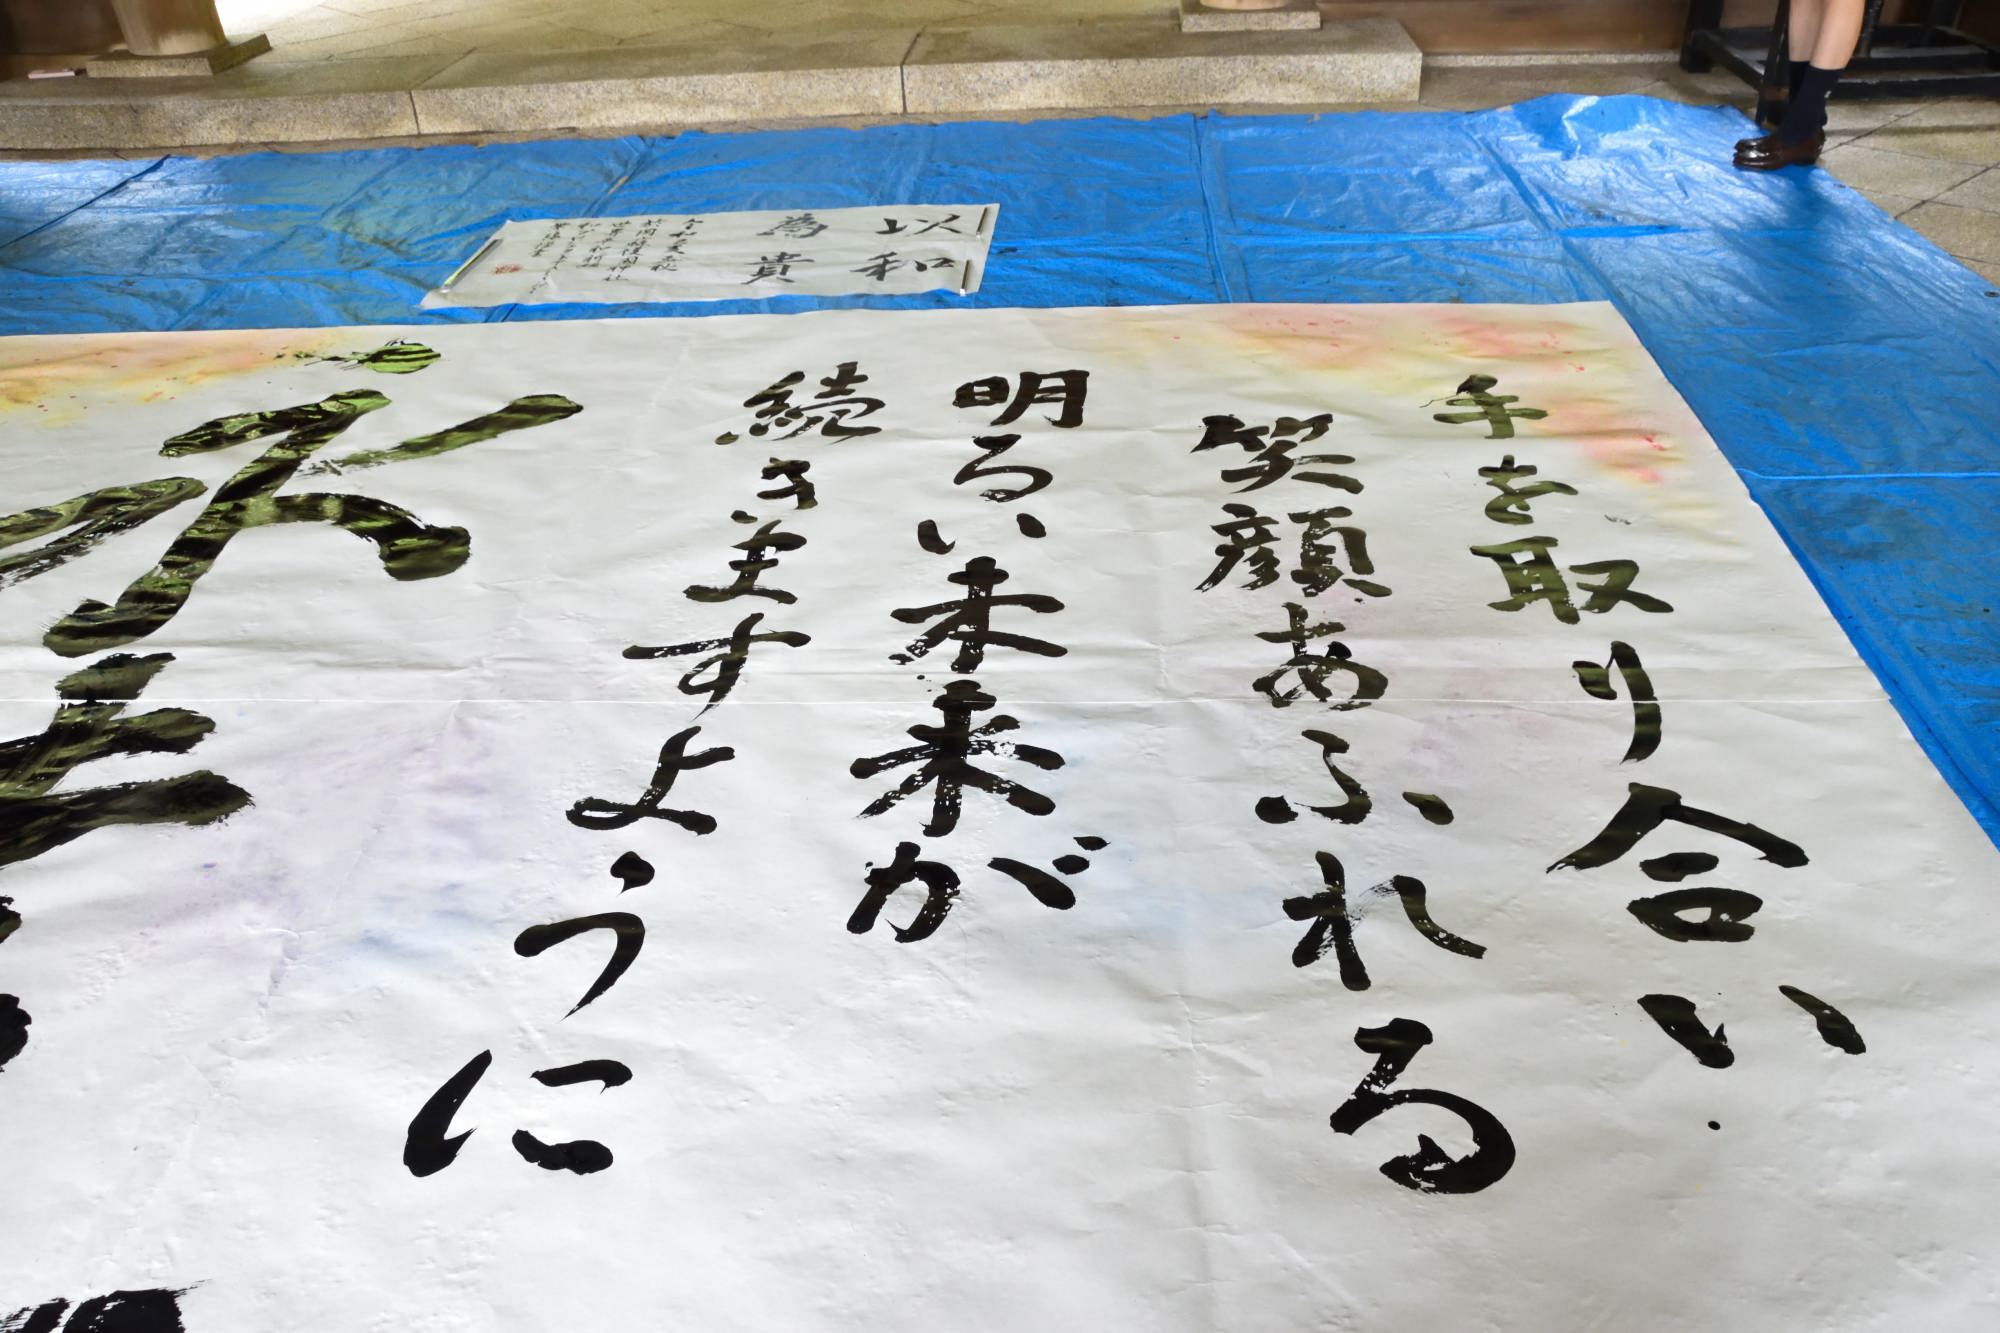 手を取り合い
笑顔あふれる
明るい未来が
続きますように
永
以和
為貴